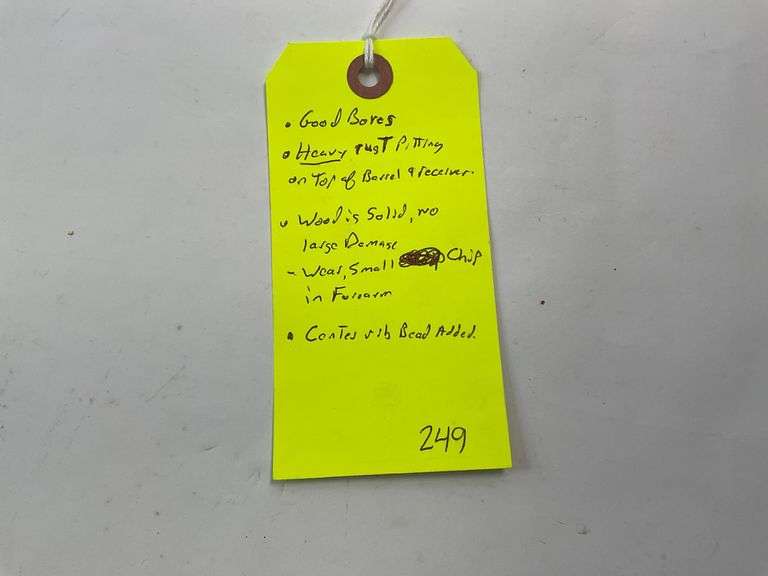 • Good Bores
• Heavy rust Pitting
on Top of Barrel & receiver.
• Wood is Solid, no
large Damage
- Wear, Small Chip
in Forearm
• Center rib Bead Added.
249